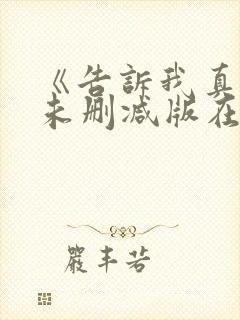 《告訴我真
未删减版在
嚴丰若